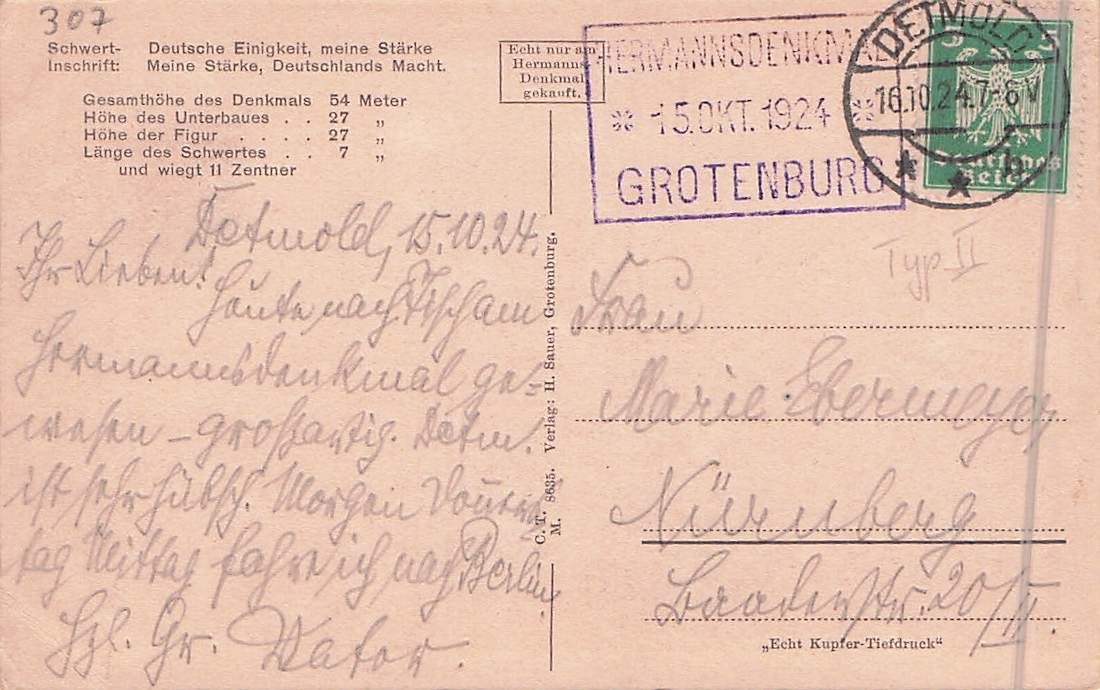 307
Schwert- Deutsche Einigkeit, meine Stärke
Inschrift: Meine Stärke, Deutschlands Macht.
Gesamthöhe des Denkmals 54 Meter
Höhe des Unterbaues . . 27 „
Höhe der Figur . . . . 27 „
Länge des Schwertes . . 7 „
und wiegt 11 Zentner
Echt nur am
Hermanns-
Denkmal
gekauft.
HERMANNSDENKMAL
* 15.OKT.1924 *
GROTENBURG
DETMOLD
16.10.24.7-8V
5 5
Deutsches
Reich
Typ II
Detmold, 15.10.24.
Ihr Lieben!
Heute nach Tisch am
Hermannsdenkmal ge-
wesen – großartig. Detm.
ist sehr hübsch. Morgen Donners
tag Mittag fahre ich nach Berlin.
Hzl. Gr. Vater.
C. T. 8635. Verlag: H. Sauer, Grotenburg.
M.
Frau
Marie Ebermayer
Nürnberg
Baaderstr. 20/II
„Echt Kupfer-Tiefdruck“